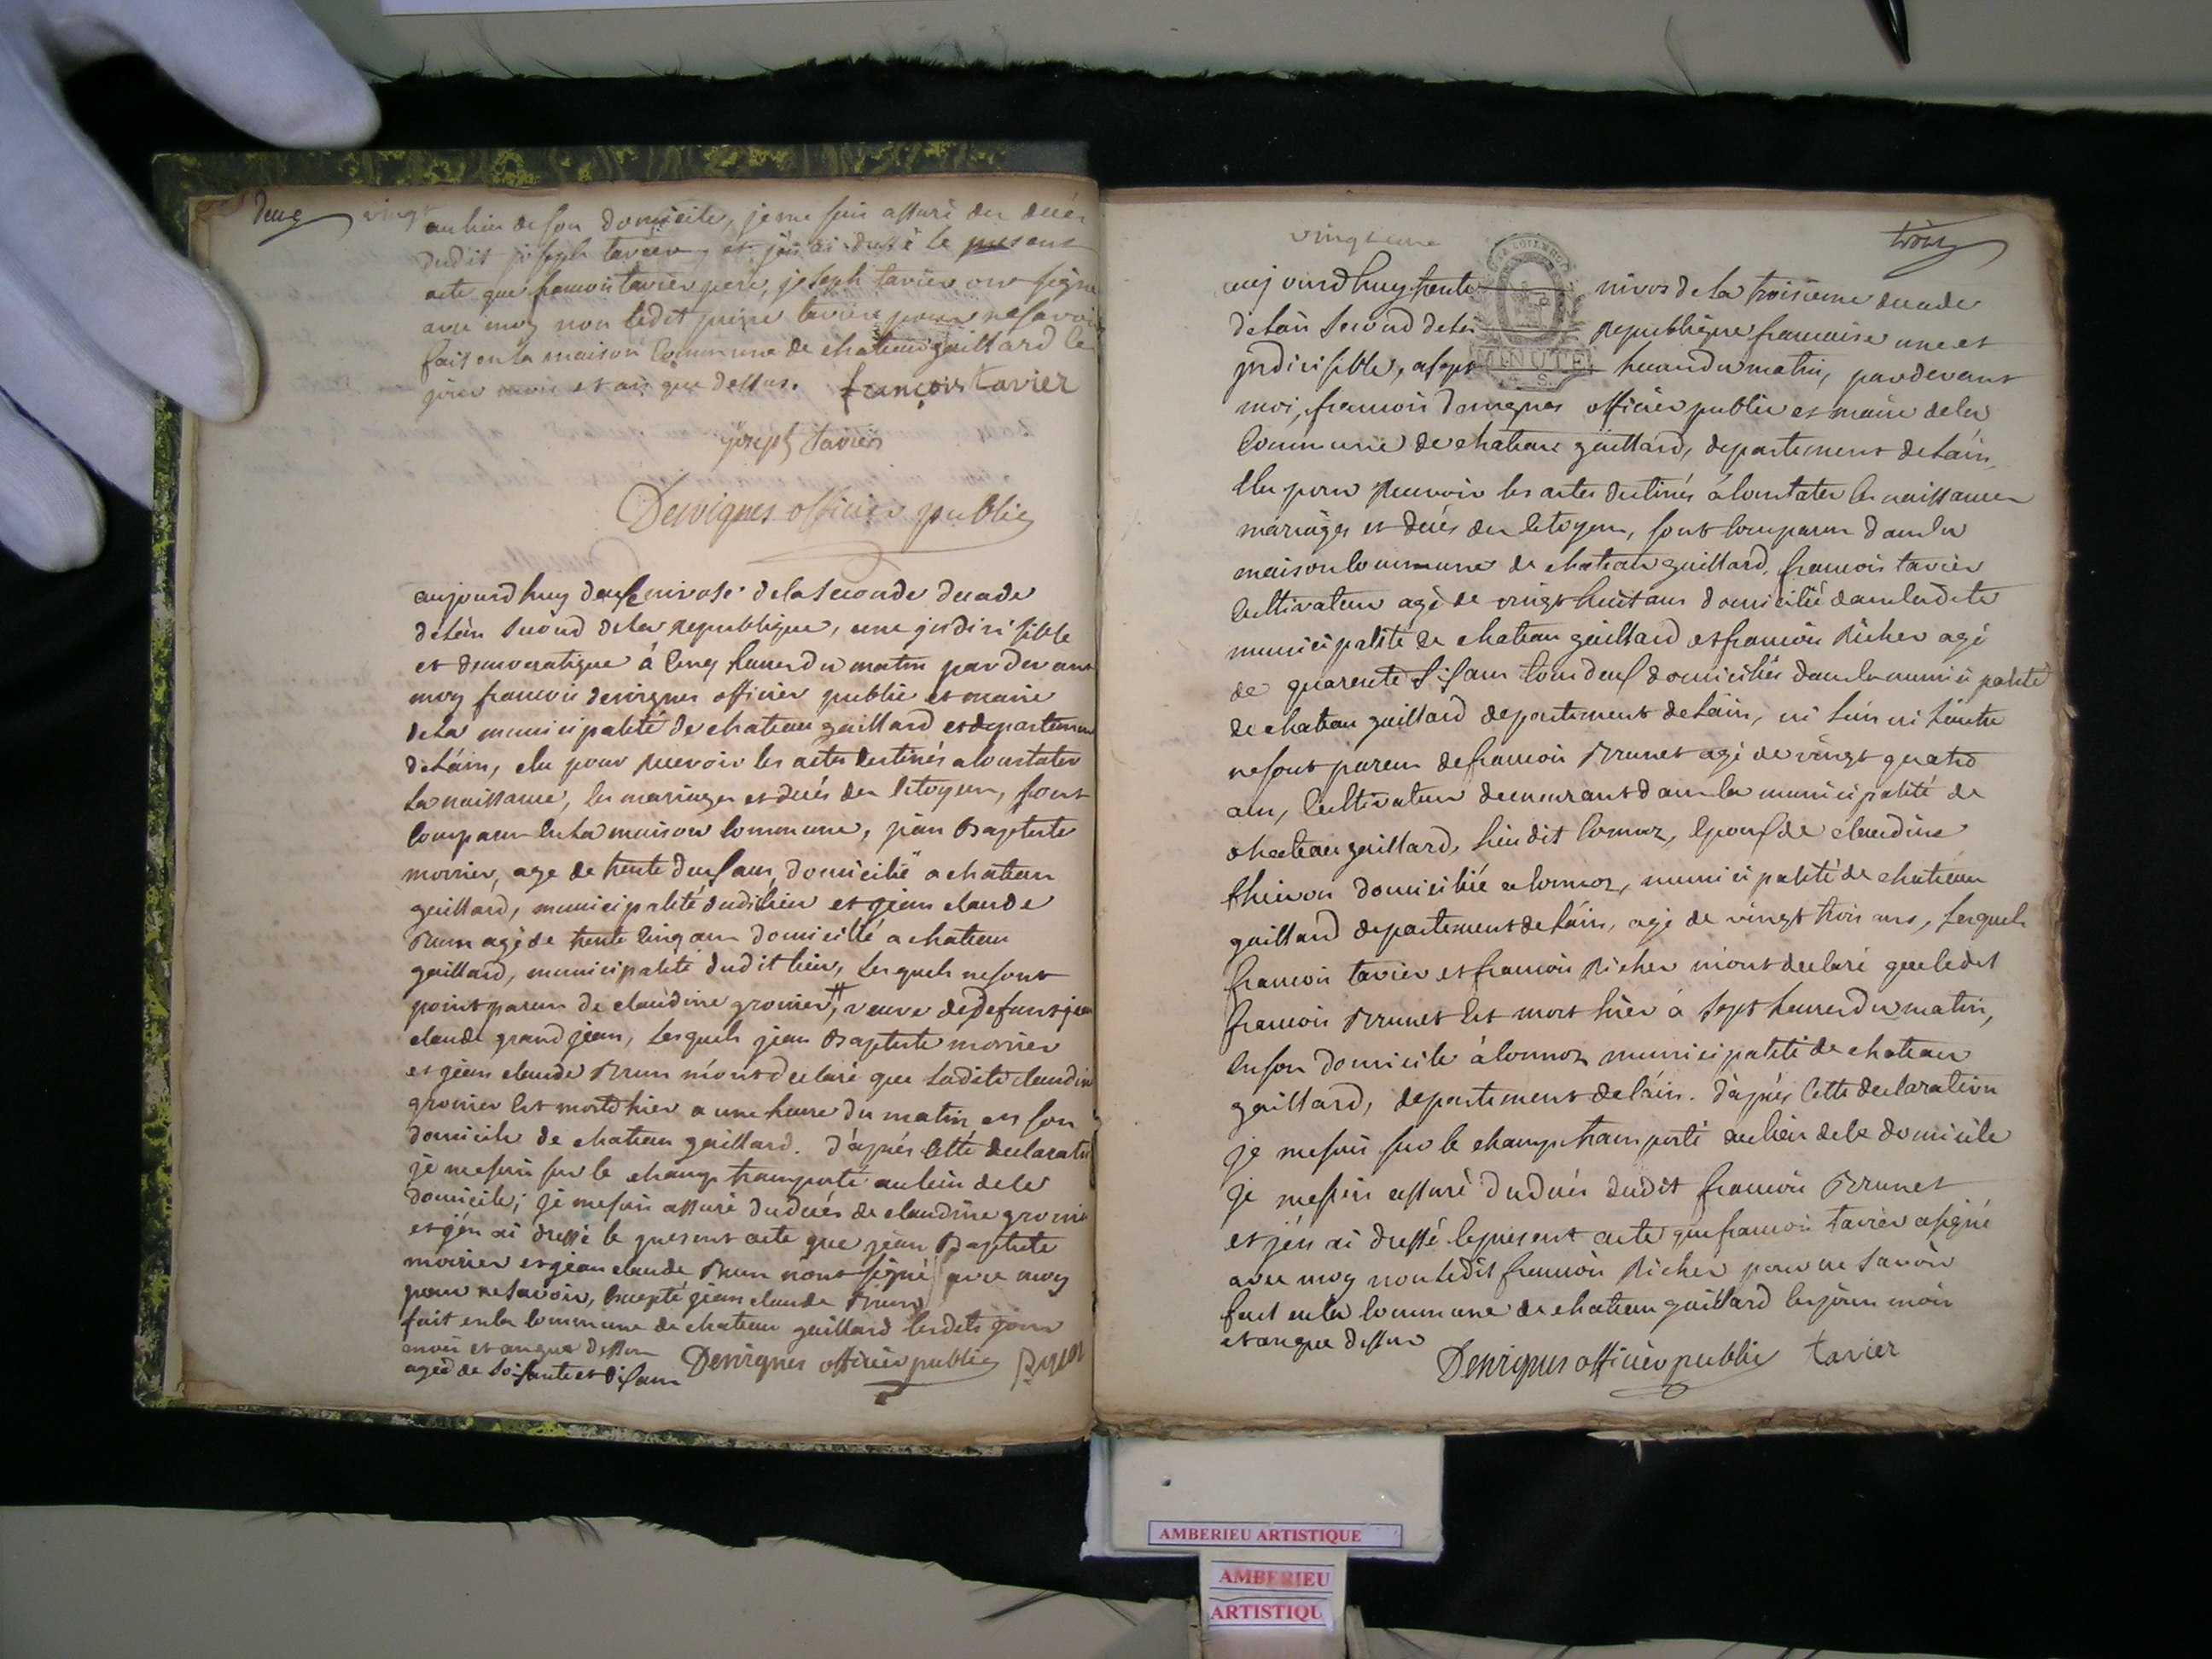 deux vingt
au lieu de son domicile, je me suis assuré du décés
dudit joseph tavier, et j'en ai dressé le present
acte que francois tavier pere, joseph tavier ont signé
avec moy non ledit pierre tavier pour ne savoir
fait en la maison commune de chateau gaillard le
jour mois et an que dessus. françois tavier
joseph tavier
Desvignes officier public
aujourdhuy deux nivose de la seconde decade
de lán second de la republique, une jndivisible
et democratique á cinq heures du matin par devant
moy francois desvignes officier public et maire
de la municipalité de chateau gaillard et departement
de Láin, elu pour recevoir les actes destinés a constater
la naissance, les mariages et decés des citoyens, sont
comparus en la maison commune, jean baptiste
morier, age de trente deux ans, domicilié a chateau
gaillard, municipalité dudit lieu et jean claude
Brun agé de trente cinq ans domicillé a chateau
gaillard, municipalité dudit lieu, lesquels ne sont
point parens de claudine gronier ++, veuve de defunt jean
claude grand jean, lesquels jean baptiste morier
et jean claude Brun m'ont declaré que ladite claudine
gronier est morte hier a une heure du matin en son
domicile de chateau gaillard. d'aprés cette declaration
je me suis sur le champ transporté au lieu de ce
domicile; je me suis assuré du decés de claudine gronier
et j'en ai dressé le present acte que jean Baptiste
morier et jean claude Brun n'ont signé avec moy
pour ne savoir, excepté jean claude Brun
fait en la commune de chateau gaillard lesdits jour
mois et an que dessus
agée de soisante et dix ans Desvignes officier public Brun
vingt une
trois
aujourdhuy trente nivos de la troisieme decade
de lán second de la Republique francaise une et
jndivisible, a sept heures du matin, pardevant
moi, francois desvignes officier public et maire de la
commune de chateau gaillard, departement de láin,
elu pour recevoir les actes destinés á constater les naissances
mariages et decés des citoyens, sont comparus dans la
maison commune de chateau gaillard, francois tavier
cultivateur agé de vingt huit ans domicilié dans ladite
municipalité de chateau gaillard et francois Richer agé
de quarente six ans tous deux domiciliés dans la municipalité
de chateau gaillard departement de láin, ni lún ni láutre
ne sont parens de francois Brunet agé de vingt quatre
ans, cultivateur demeurant dans la municipalité de
chateau gaillard, lieu dit cormoz, epoux de claudine
thevon domiciliée a cormoz, municipalité de chateau
gaillard departement de láin, agé de vingt trois ans, lesquels
francois tavier et francois Richer m'ont declaré que ledit
francois Brunet est mort hier á sept heures du matin,
en son domicile á cormoz municipalité de chateau
gaillard, departement de láin. d'aprés cette declaration
je me suis sur le champ transporté au lieu de ce domicile
je me suis assuré du decés dudit francois Brunet
et j'en ai dressé le present acte que francois tavier a signé
avec moy non ledit francois Richer pour ne savoir
fait en la commune de chateau gaillard les jour mois
et an que dessus
Desvignes officier public tavier
MINUTE
AMBERIEU ARTISTIQUE
AMBERIEU
ARTISTIQU